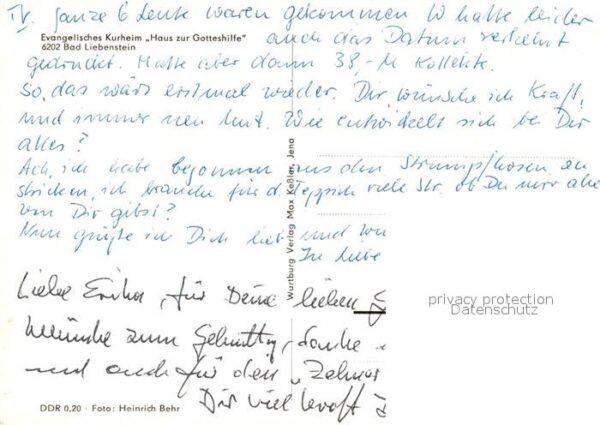 IV. ganze 6 Leute waren gekommen. W hatte leider
Evangelisches Kurheim „Haus zur Gotteshilfe"
6202 Bad Liebenstein
auch das Datum verkehrt
gedruckt. Hatte aber dann 38,-M Kollekte.
So, das wärs erstmal wieder. Dir wünsche ich Kraft,
und immer neu Mut. Wie entwickelt sich bei Dir
alles?
Ach, ich habe begonnen aus den Strumpfhosen zu
stricken, ich brauche für d Teppich viele Str. ob Du mir alte
von Dir gibst?
Nun grüße ich Dich lieb und
In Liebe
Wartburg Verlag Max Keßler, Jena
Liebe Erika, für Deine lieben
Wünsche zum Geburtstg, danke
und auch für den „Zehner
Dir viel Kraft
privacy protection
Datenschutz
DDR 0,20 · Foto: Heinrich Behr